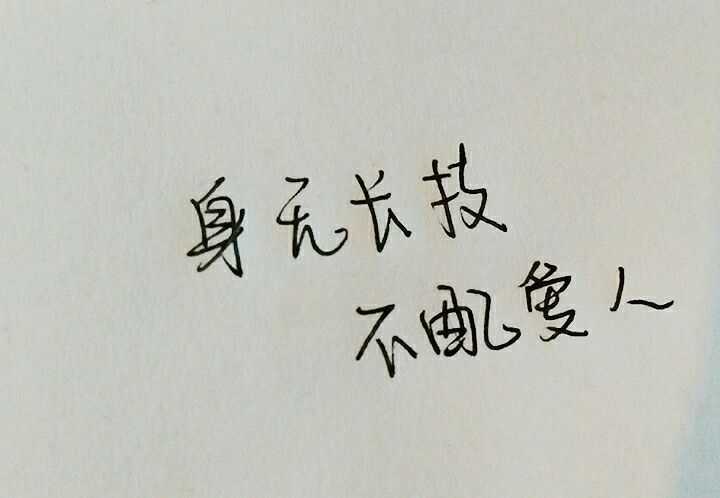 身无长技
不配爱人